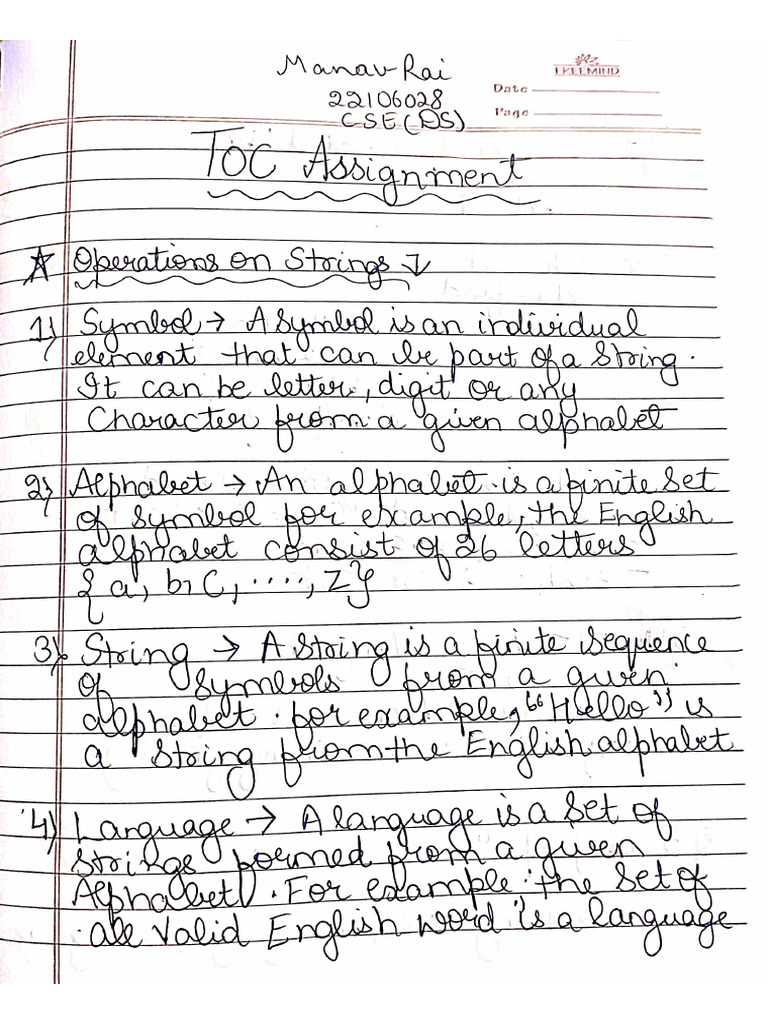 Manav Rai
FREEMIND
22106028
Date
CSE(DS)
Page
TOC Assignment
Operations on Strings ↓
1) Symbol → A symbol is an individual
element that can be part of a string.
It can be letter, digit or any
Character from a given alphabet
2) Alphabet → An alphabet is a finite set
of symbol for example, the English
alphabet consist of 26 letters
{a, b, c, ....., z}
3) String → A string is a finite sequence
of symbols from a given
alphabet. for example, "Hello" is
a string from the English alphabet
4) Language → A language is a set of
strings formed from a given
Alphabet. For example the set of
all valid English word is a language